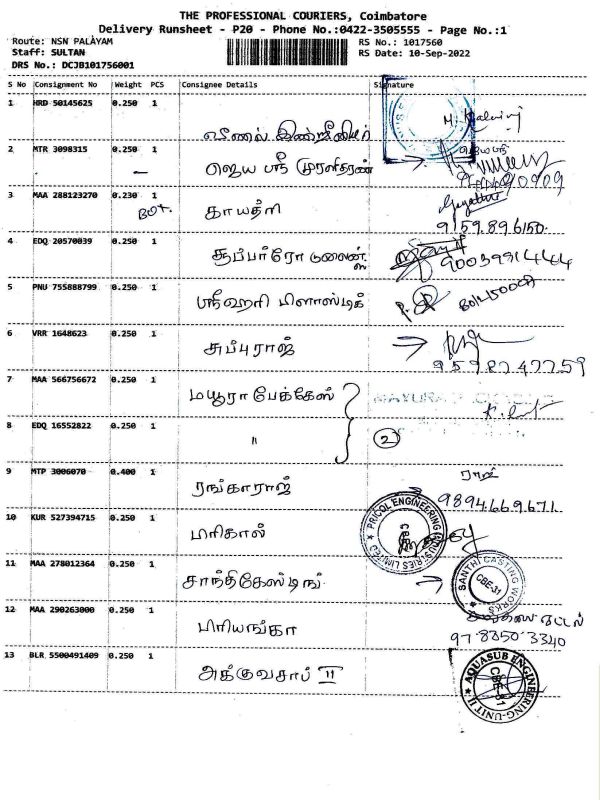 THE PROFESSIONAL COURIERS, Coimbatore
Delivery Runsheet - P20 - Phone No.:0422-3505555 - Page No.:1
Route: NSN PALAYAM
RS No.: 1017560
Staff: SULTAN
RS Date: 10-Sep-2022
DRS No.: DCJB101756001
S No Consignment No Weight PCS Consignee Details Signature
1 HRD 50145625 0.250 1
2 MTR 3098315 0.250 1
ஜெய ஸ்ரீ முரளிதரண்
3 MAA 288123270 0.230 1
காயத்ரி
9159896150
4 EDQ 20570039 0.250 1
9003991444
5 PNU 755888799 0.250 1
ஸ்ரீஹரி பிளாஸ்டிக்
6 VRR 1648623 0.250 1
சுப்புராஜ்
7 MAA 566756672 0.250 1
மயூரா பேக்கேஸ்
8 EDQ 16552822 0.250 1
"
2
9 MTP 3006070 0.400 1
ரங்காராஜ்
ராஜ்
9894669671
10 KUR 527394715 0.250 1
PRICOL ENGINEERING INDUSTRIES LIMITED
CBE
11 MAA 278012364 0.250 1
சாந்திகேஸ்டிங்
SANTHI CASTING WORKS
CBE-31
12 MAA 290263000 0.250 1
பிரியங்கா
97 8350 3340
13 BLR 5500491409 0.250 1
அக்குவசாப் II
AQUASUB ENGINEERING-UNIT II